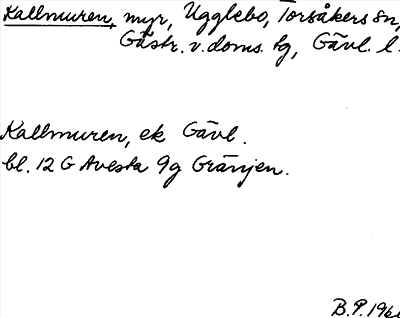 Kallmuren, myr, Ugglebo, Torsåkers sn,
Gästr. v. doms. hg, Gävl. l.
Kallmuren, ek Gävl.
bl. 12 G Avesta 9g Gränjen.
B.P. 196